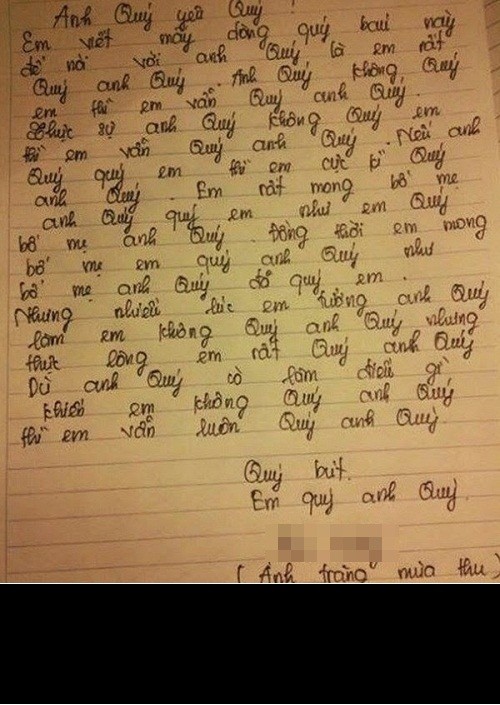 Anh Quý yêu Quý !
Em viết mấy dòng quý báu này
để nói với anh Quý là em rất
Quý anh Quý. Anh Quý không Quý
em thì em vẫn Quý anh Quý.
Thực sự anh Quý không Quý em
thì em vẫn Quý anh Quý. Nếu anh
Quý quý em thì em cực kì Quý
anh Quý. Em rất mong bố mẹ
anh Quý quý em như em Quý
bố mẹ anh Quý. Đồng thời em mong
bố mẹ em quý anh Quý như
bố mẹ anh Quý đã quý em.
Nhưng nhiều lúc em tưởng anh Quý
làm em không Quý anh Quý nhưng
thực lòng em rất Quý anh Quý
Dù anh Quý có làm điều gì
khiến em không Quý anh Quý
thì em vẫn luôn Quý anh Quý
Quý bút.
Em quý anh Quý.
( Ánh trăng mùa thu )